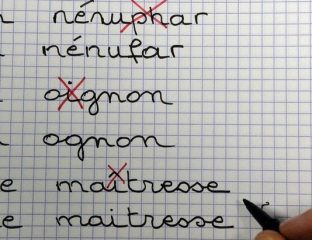 nénuphar
nénufar
oignon
ognon
e maîtresse
e maitresse